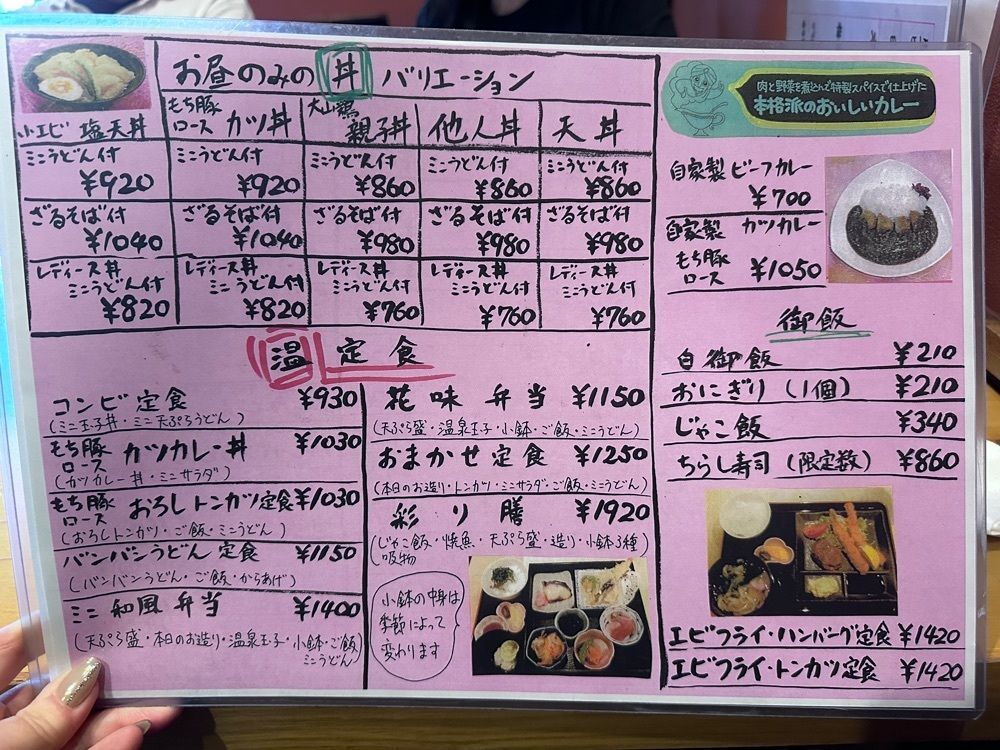 お昼のみの 丼 バリエーション
小エビ 塩天丼
もち豚
ロース カツ丼
大山鶏
親子丼
他人丼
天丼
ミニうどん付
¥920
ミニうどん付
¥920
ミニうどん付
¥860
ミニうどん付
¥860
ミニうどん付
¥860
ざるそば付
¥1040
ざるそば付
¥1040
ざるそば付
¥980
ざるそば付
¥980
ざるそば付
¥980
レディース丼
ミニうどん付
¥820
レディース丼
ミニうどん付
¥820
レディース丼
ミニうどん付
¥760
レディース丼
ミニうどん付
¥760
レディース丼
ミニうどん付
¥760
温 定食
コンビ定食 ¥930
(ミニ玉子丼・ミニ天ぷらうどん)
もち豚
ロース カツカレー丼 ¥1030
(カツカレー丼・ミニサラダ)
もち豚
ロース おろしトンカツ定食 ¥1030
(おろしトンカツ・ご飯・ミニうどん)
バンバンうどん定食 ¥1150
(バンバンうどん・ご飯・からあげ)
ミニ和風弁当 ¥1400
(天ぷら盛・本日のお造り・温泉玉子・小鉢・ご飯)
ミニうどん
花味弁当 ¥1150
(天ぷら盛・温泉玉子・小鉢・ご飯・ミニうどん)
おまかせ定食 ¥1250
(本日のお造り・トンカツ・ミニサラダ・ご飯・ミニうどん)
彩り膳 ¥1920
(じゃこ飯・焼魚・天ぷら盛・造り・小鉢3種)
吸物
小鉢の中身は
季節によって
変わります
肉と野菜を煮込んで特製スパイスで仕上げた
本格派のおいしいカレー
自家製 ビーフカレー
¥700
自家製 カツカレー
もち豚
ロース ¥1050
御飯
白御飯 ¥210
おにぎり(1個) ¥210
じゃこ飯 ¥340
ちらし寿司(限定数) ¥860
エビフライ・ハンバーグ定食 ¥1420
エビフライ・トンカツ定食 ¥1420